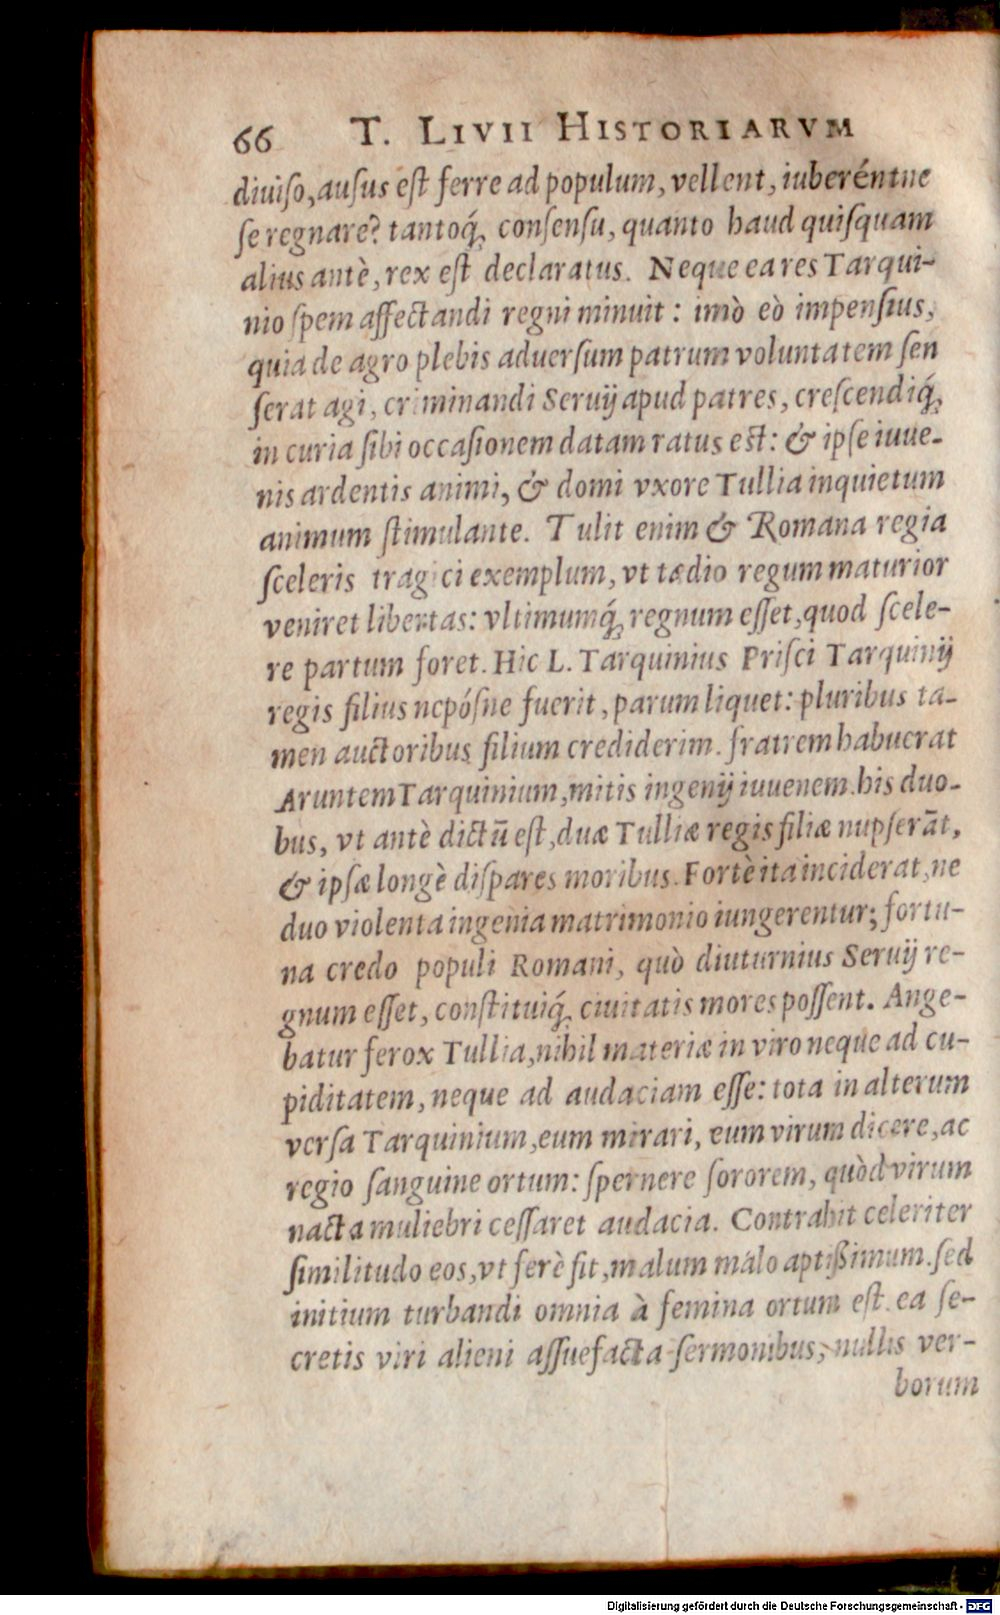 66 T. LIVII HISTORIARVM
diuiſo, auſus eſt ferre ad populum, vellent, iuberéntne
ſe regnare? tantoq́; conſenſu, quanto haud quiſquam
alius antè, rex eſt declaratus. Neque ea res Tarqui-
nio ſpem affectandi regni minuit: imò eò impenſius,
quia de agro plebis aduerſum patrum voluntatem ſen
ſerat agi, criminandi Seruij apud patres, creſcendiq́;
in curia ſibi occaſionem datam ratus eſt: & ipſe iuue-
nis ardentis animi, & domi vxore Tullia inquietum
animum ſtimulante. Tulit enim & Romana regia
ſceleris tragici exemplum, vt tædio regum maturior
veniret libertas: vltimumq́; regnum eſſet, quod ſcele-
re partum foret. Hic L. Tarquinius Priſci Tarquinij
regis filius nepóſne fuerit, parum liquet: pluribus ta-
men auctoribus filium crediderim. fratrem habuerat
Aruntem Tarquinium, mitis ingenij iuuenem. his duo-
bus, vt antè dictũ eſt, duæ Tulliæ regis filiæ nupſerãt,
& ipſæ longè diſpares moribus. Fortè ita inciderat, ne
duo violenta ingenia matrimonio iungerentur; fortu-
na credo populi Romani, quò diuturnius Seruij re-
gnum eſſet, conſtituiq́; ciuitatis mores poſſent. Ange-
batur ferox Tullia, nihil materiæ in viro neque ad cu-
piditatem, neque ad audaciam eſſe: tota in alterum
verſa Tarquinium, eum mirari, eum virum dicere, ac
regio ſanguine ortum: ſpernere ſororem, quòd virum
nacta muliebri ceſſaret audacia. Contrahit celeriter
ſimilitudo eos, vt ferè fit, malum malo aptißimum. ſed
initium turbandi omnia à femina ortum eſt. ea ſe-
cretis viri alieni aſſuefacta ſermonibus, nullis ver-
borum
Digitalisierung gefördert durch die Deutsche Forschungsgemeinschaft - DFG